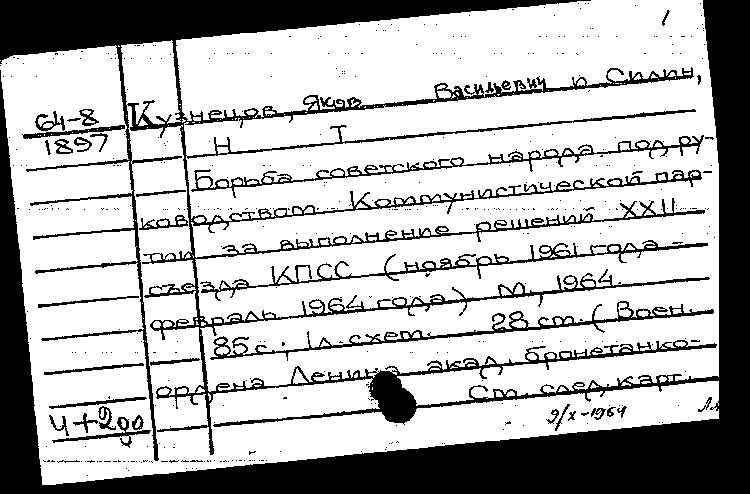 1
64-8
1897
Кузнецов, Яков Васильевич и Силин,
Н Т
Борьба советского народа под ру-
ководством Коммунистической пар-
тии за выполнение решений XXII
съезда КПСС (ноябрь 1961 года -
февраль 1964 года) М., 1964.
85 с.; 1 л. схем. 28 см. (Воен.
ордена Ленина акад. бронетанко-
См. след. карт.
Ч+200
9/X-1964